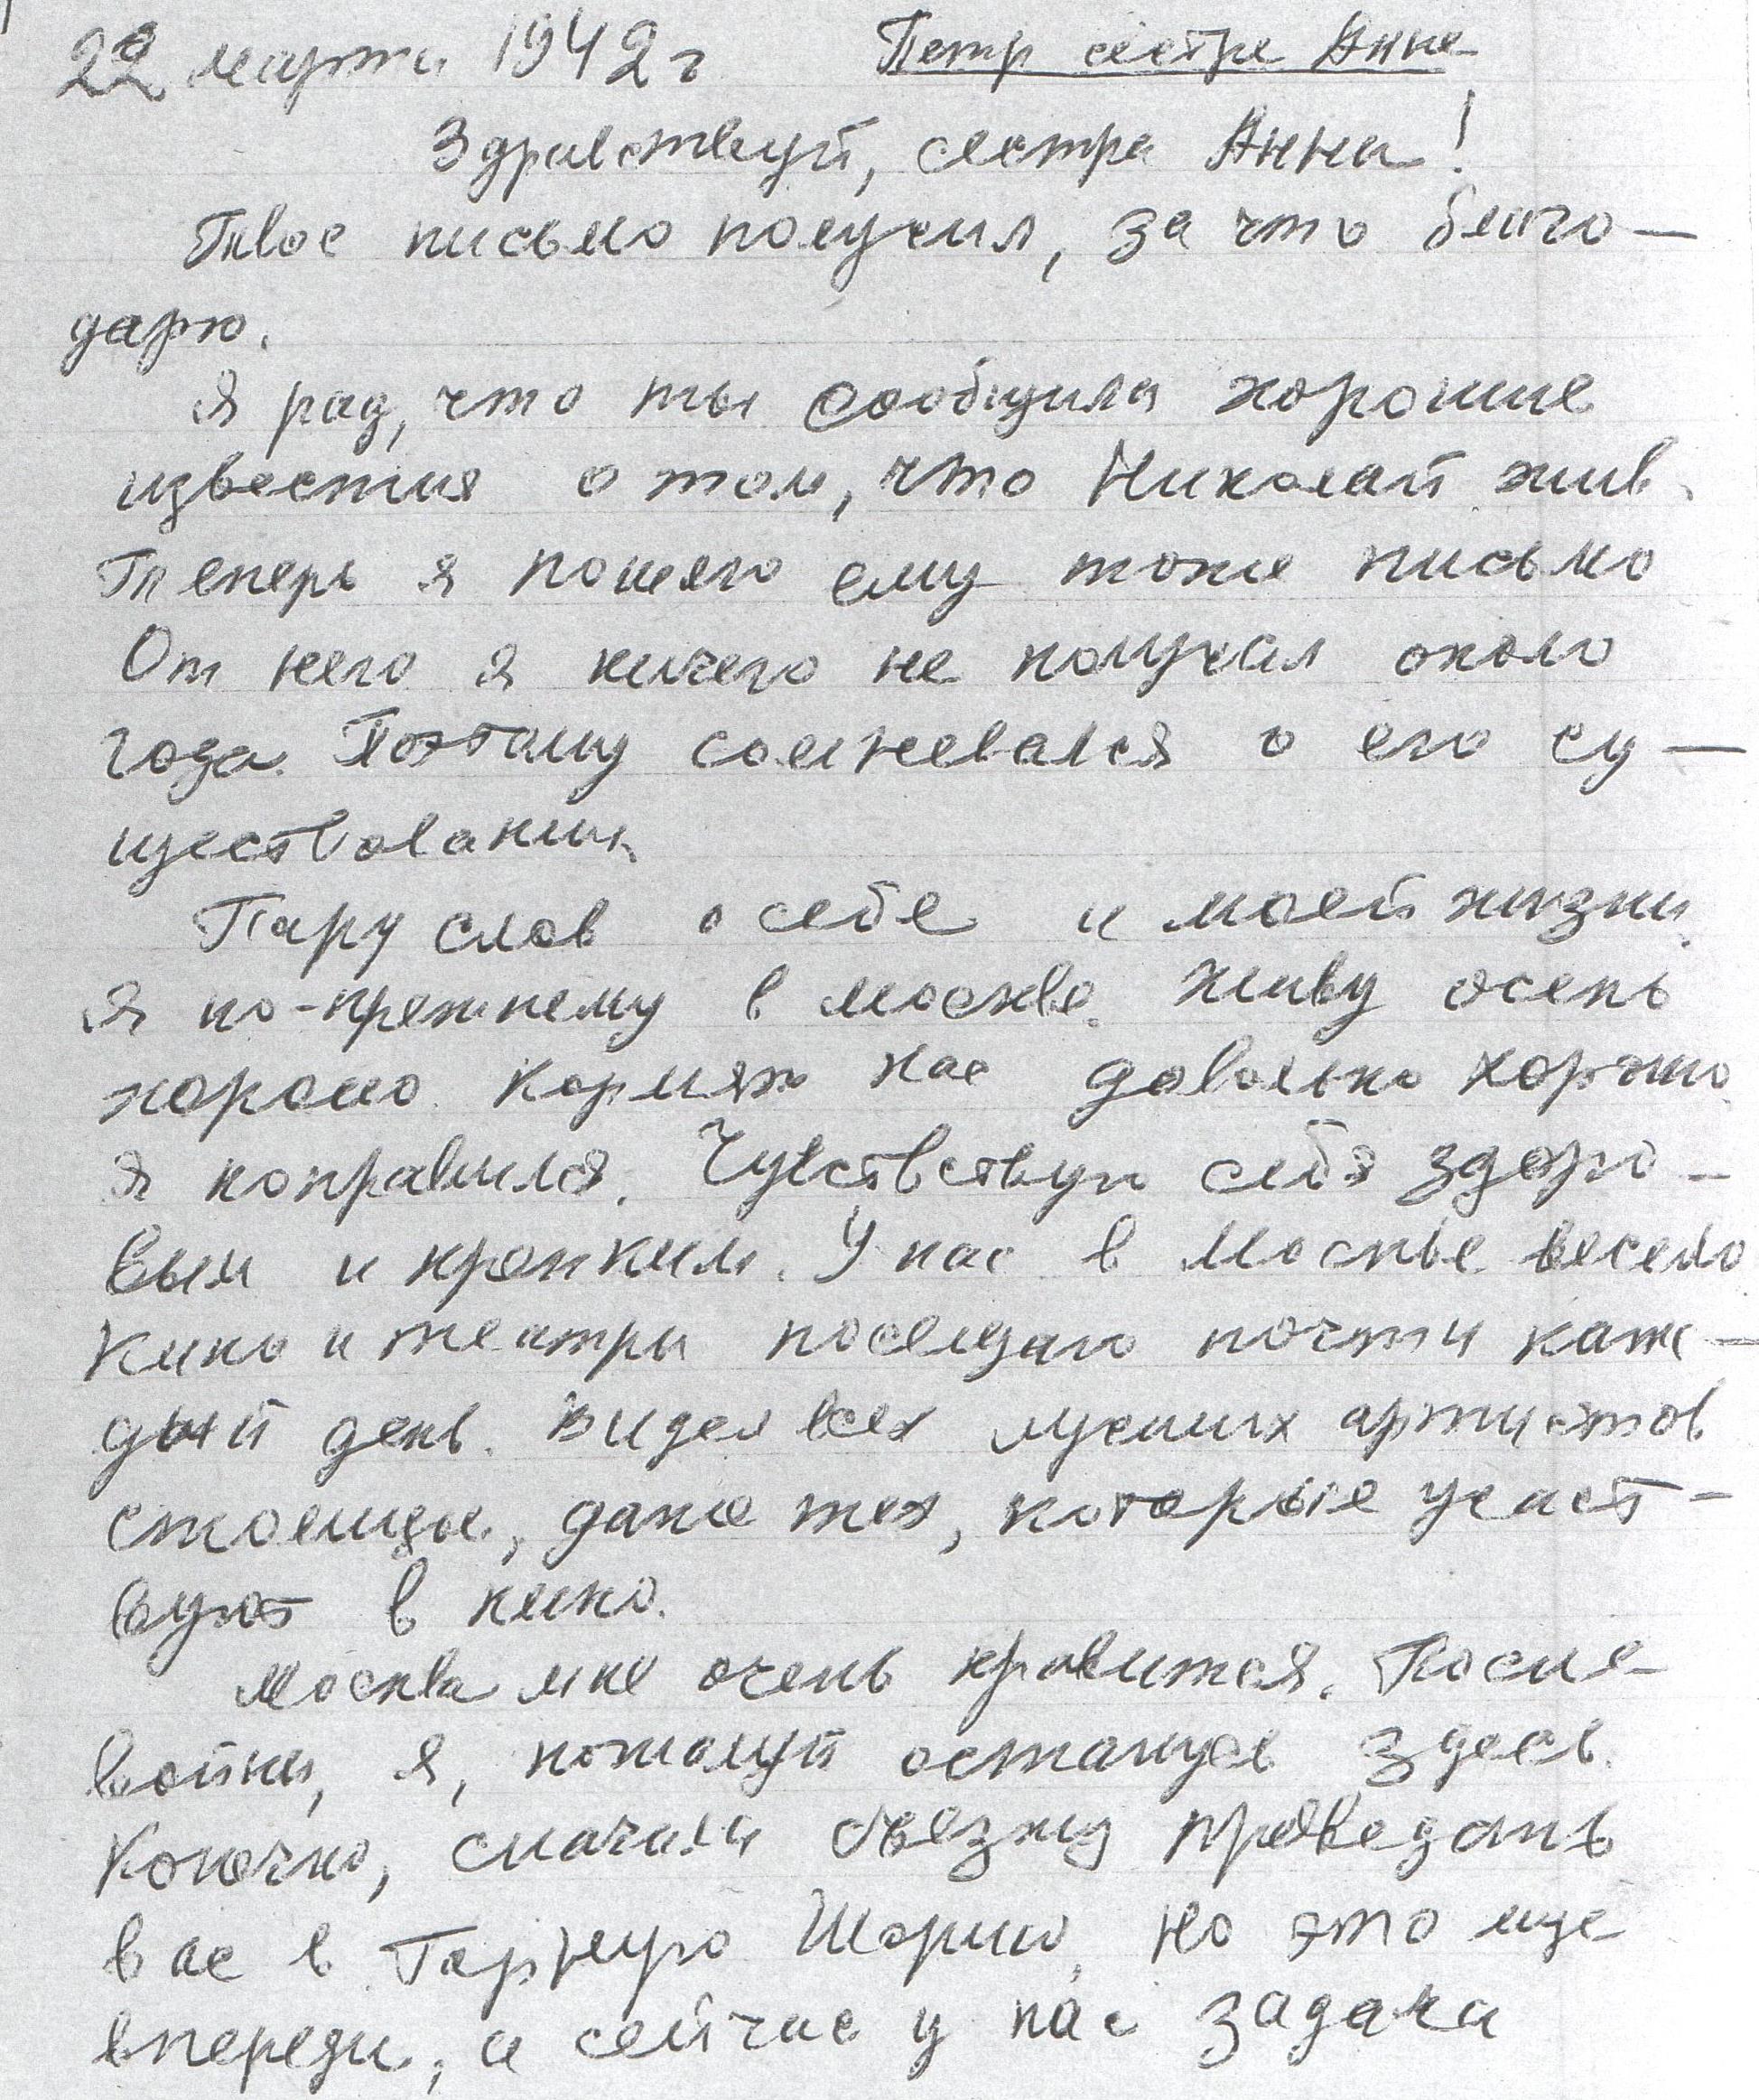 22 марта 1942 г Петр сестре Анне
Здравствуй, сестра Анна!
Твое письмо получил, за что благо-
дарю.
Я рад, что ты сообщила хорошие
известия о том, что Николай жив.
Теперь я пошлю ему тоже письмо
От него я ничего не получал около
года. Поэтому сомневался о его су-
ществовании.
Пару слов о себе и моей жизни.
Я по-прежнему в Москве. Живу очень
хорошо. Кормят нас довольно хорошо
Я поправился. Чувствую себя здоро-
вым и крепким. У нас в Москве весело
Кино и театры посещаю почти каж-
дый день. Видел всех лучших артистов
столицы, даже тех, которые участ-
вуют в кино.
Москва мне очень нравится. После
войны, я, пожалуй останусь здесь.
Конечно, сначала съезжу проведать
вас в Горную Шорию, но это еще
впереди, а сейчас у нас задача